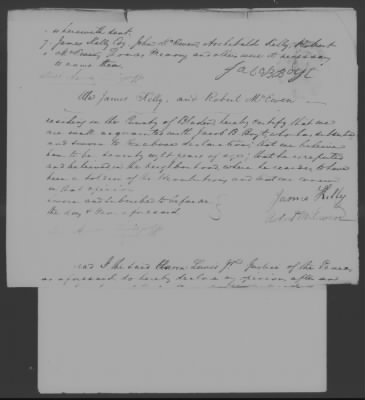 wherewith sent.
7. James Kelly Esq John McEwen, Archibald Kelly, Robert
McEwen, Thomas and others were it necessary
to name them.
Jacob B Boyt
We James Kelly, and Robert McEwen
residing in the County of Bladen hereby certify that we
are well acquainted with Jacob B Boyt, who has subscribed
and sworn to the above declaration; that we believe
him to be seventy years of age; that he is reputed
and believed in the neighborhood, where he resides, to have
been a soldier of the Revolution, and that we concur
in that opinion
sworn and subscribed to before me
the day & year aforesaid.
James Kelly
McEwen
And I the said Lewis Jr Justice of the Peace
as aforesaid, do hereby declare my opinion, after